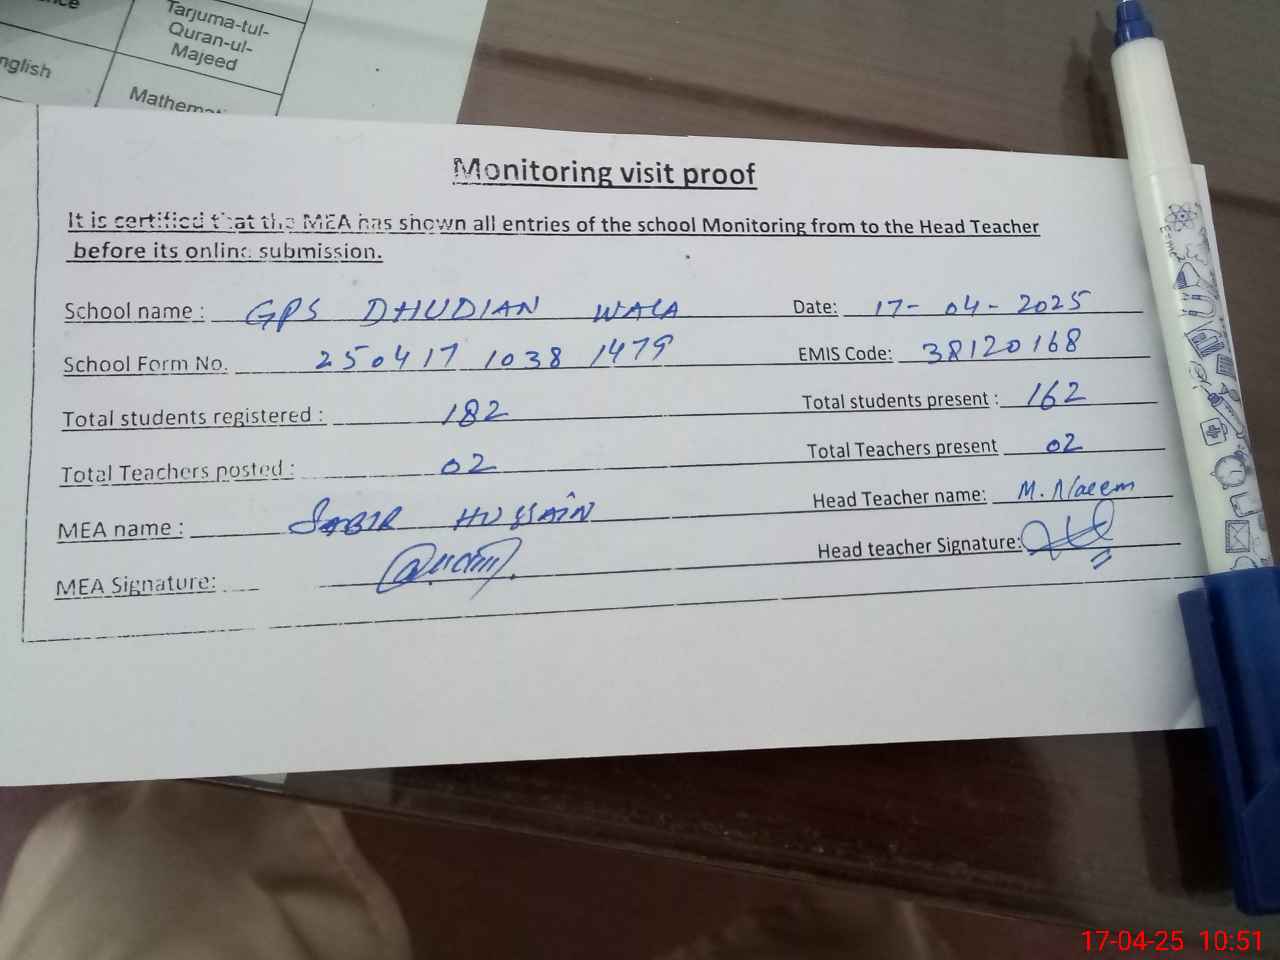 Tarjuma-tul-
Quran-ul-
Majeed
nglish
Monitoring visit proof
It is certified that the MEA has shown all entries of the school Monitoring from to the Head Teacher
before its online submission.
School name : GPS DHUDIAN WALA Date: 17-04-2025
School Form No. 250417 1038 1479 EMIS Code: 38120168
Total students registered : 182 Total students present : 162
Total Teachers posted : 02 Total Teachers present 02
MEA name : SABIR HUSSAIN Head Teacher name: M. Naeem
MEA Signature: Head teacher Signature:
17-04-25 10:51